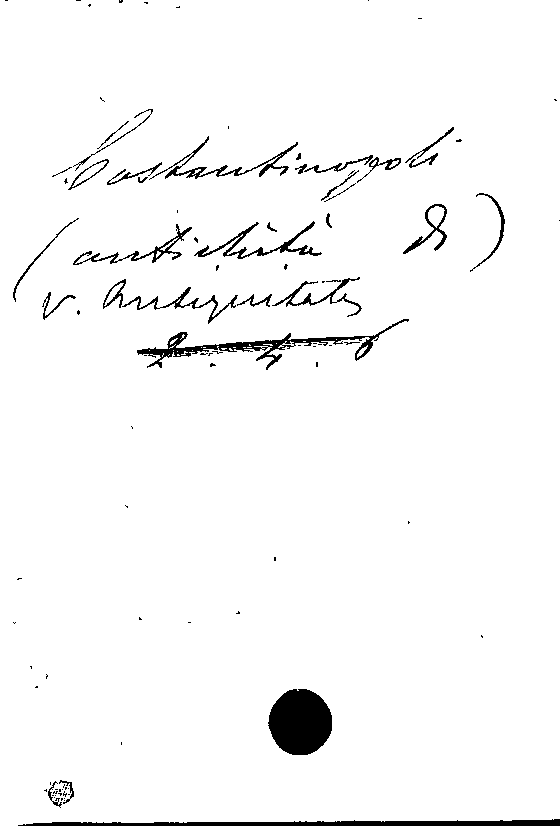 Costantinopoli
(antichità di)
v. Antiquitates
2.4.6